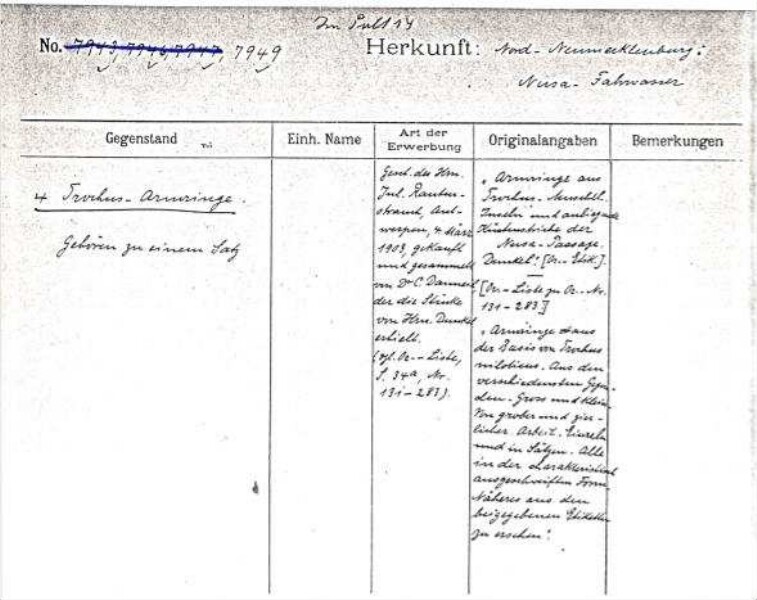 Im Pult 14
No. 7943, 7946, 7947, 7949
Herkunft: Nord-Neumecklenburg:
Nusa-Fahrwasser
Gegenstand
Einh. Name
Art der
Erwerbung
Originalangaben
Bemerkungen
4 Trochus-Armringe.
Gehören zu einem Satz
Gesch. des Hrn.
Jul. Rauten-
strauch, Ant-
werpen, 4. März
1903, gekauft
und gesammelt
von Dr C. Danneil
der die Stücke
von Hrn. Dunkel
erhielt.
(vgl. Or.-Liste,
S. 34a, Nr.
131-283).
"Armringe aus
Trochus-Muschel.
Inseln und anliegende
Küstenstriche der
Nusa-Passage.
Dunkel". [Or.-Etik.].
[Or.-Liste zu Or.-Nr.
131-283]
"Armringe aus
der Basis von Trochus
niloticus. Aus den
verschiedensten Gegen-
den. Gross und klein.
Von grober und zier-
licher Arbeit. Einzeln
und in Sätzen. Alle
in der charakteristisch
ausgeschweiften Form.
Näheres aus den
beigegebenen Etiketten
zu ersehen".